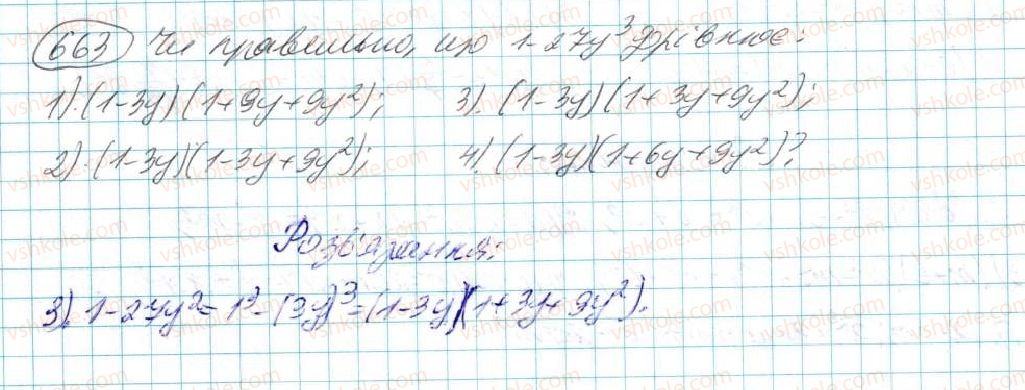 663 Чи правильно, що 1-27y³ дорівнює:
1).(1-3y)(1+9y+9y²); 3).(1-3y)(1+3y+9y²);
2).(1-3y)(1-3y+9y²); 4).(1-3y)(1+6y+9y²)?
Розв'язання:
3). 1-27y²=1³-(3y)³=(1-3y)(1+3y+9y²).